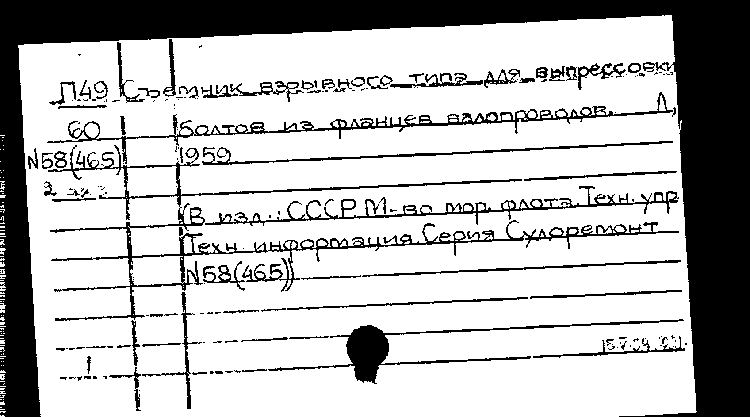 П49 Съемник взрывного типа для выпрессовки
60 болтов из фланцев валопроводов. Л,
N58(465) 1959
2 экз
(В изд.: СССР М-во мор. флота. Техн. упр
Техн. информация. Серия Судоремонт
N58(465))
1